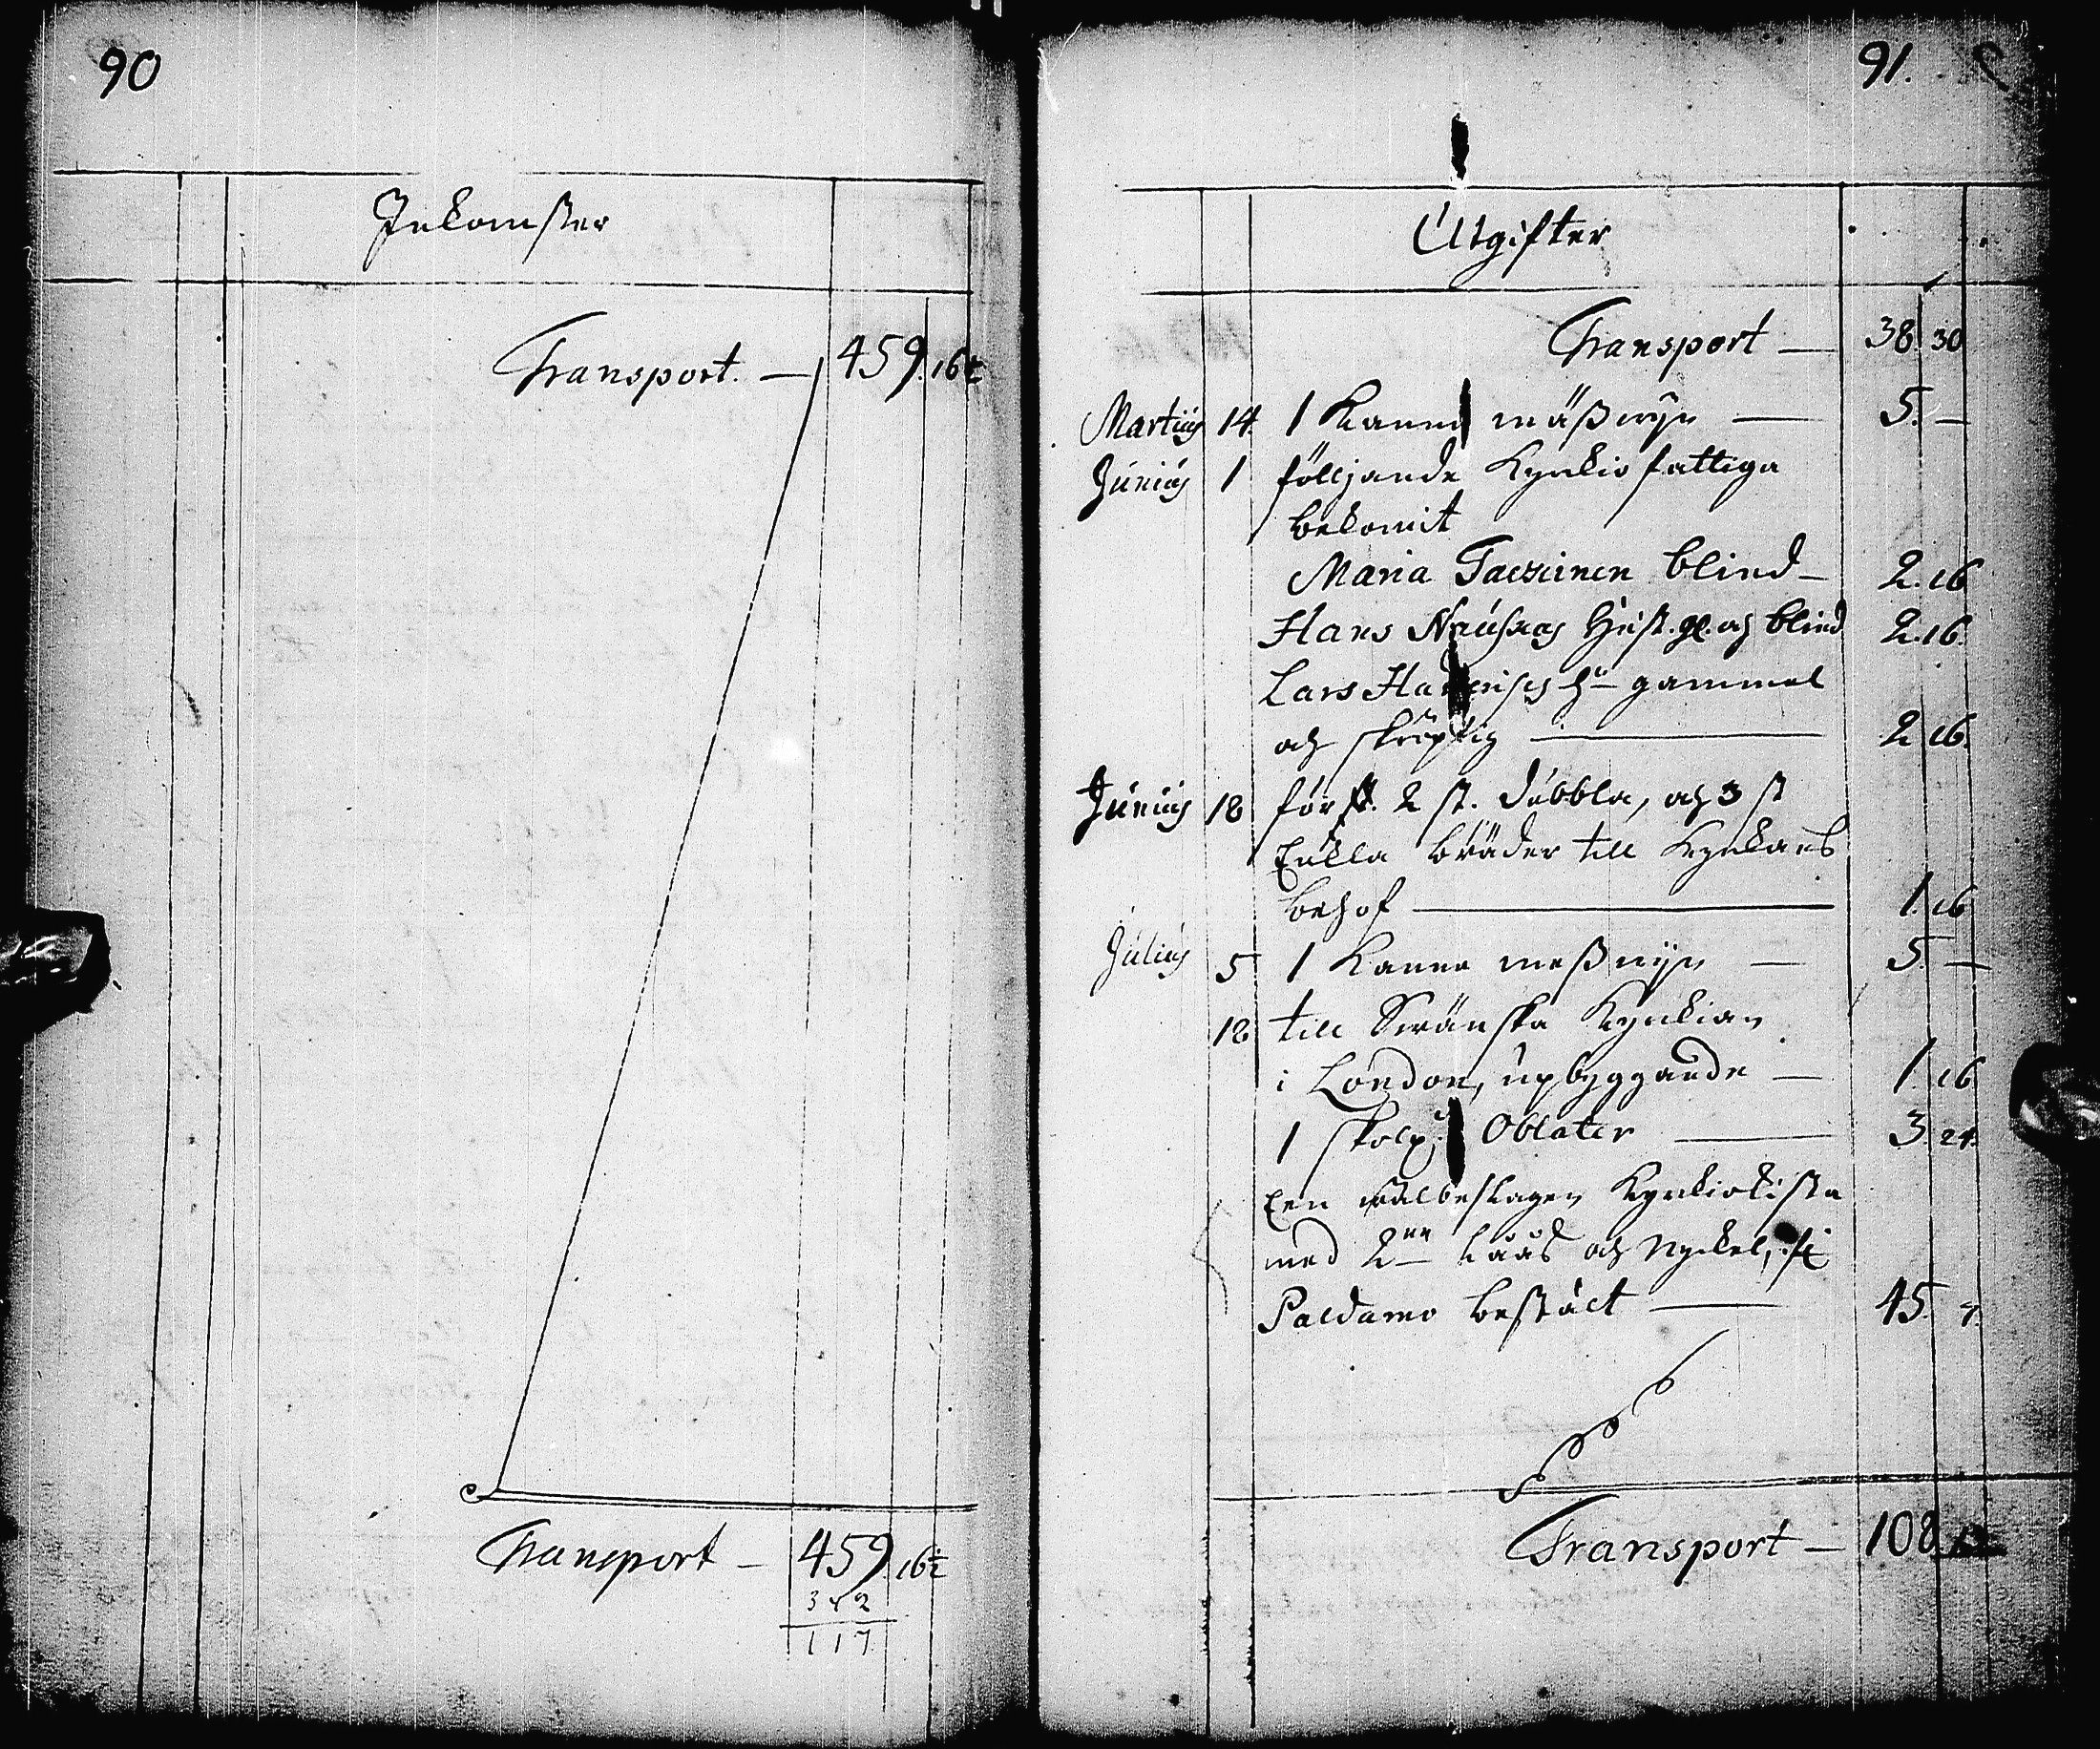 90
Inkomster
Transport. — 459. 16½
Transport — 459. 16½
342
117
91.
Utgifter
Transport — 38. 30
Martius 14. 1 Kanna mäßwijn — 5. —
Junius 1 följjande Kyrkio fattiga
bekomit
Maria Taesinen blind — 2. 16
Hans hust. och blind 2. 16.
Lars hu gammel
och skröplig — 2 16.
Junius 18 för 2 st. dubbla, och 3 st
Enkla bräder till Kyrkans
behof — 1. 16
Julius 5 1 Kanna meßwijn — 5. —
18 till Swänska Kyrkian
i London, upbyggande — 1. 16
1 skolp: Oblater — 3 24.
Een wälbeslagen Kyrkiokista
med 2ne Låås och Nyckel,
Paldamo bestält — 45. 4.
Transport — 108